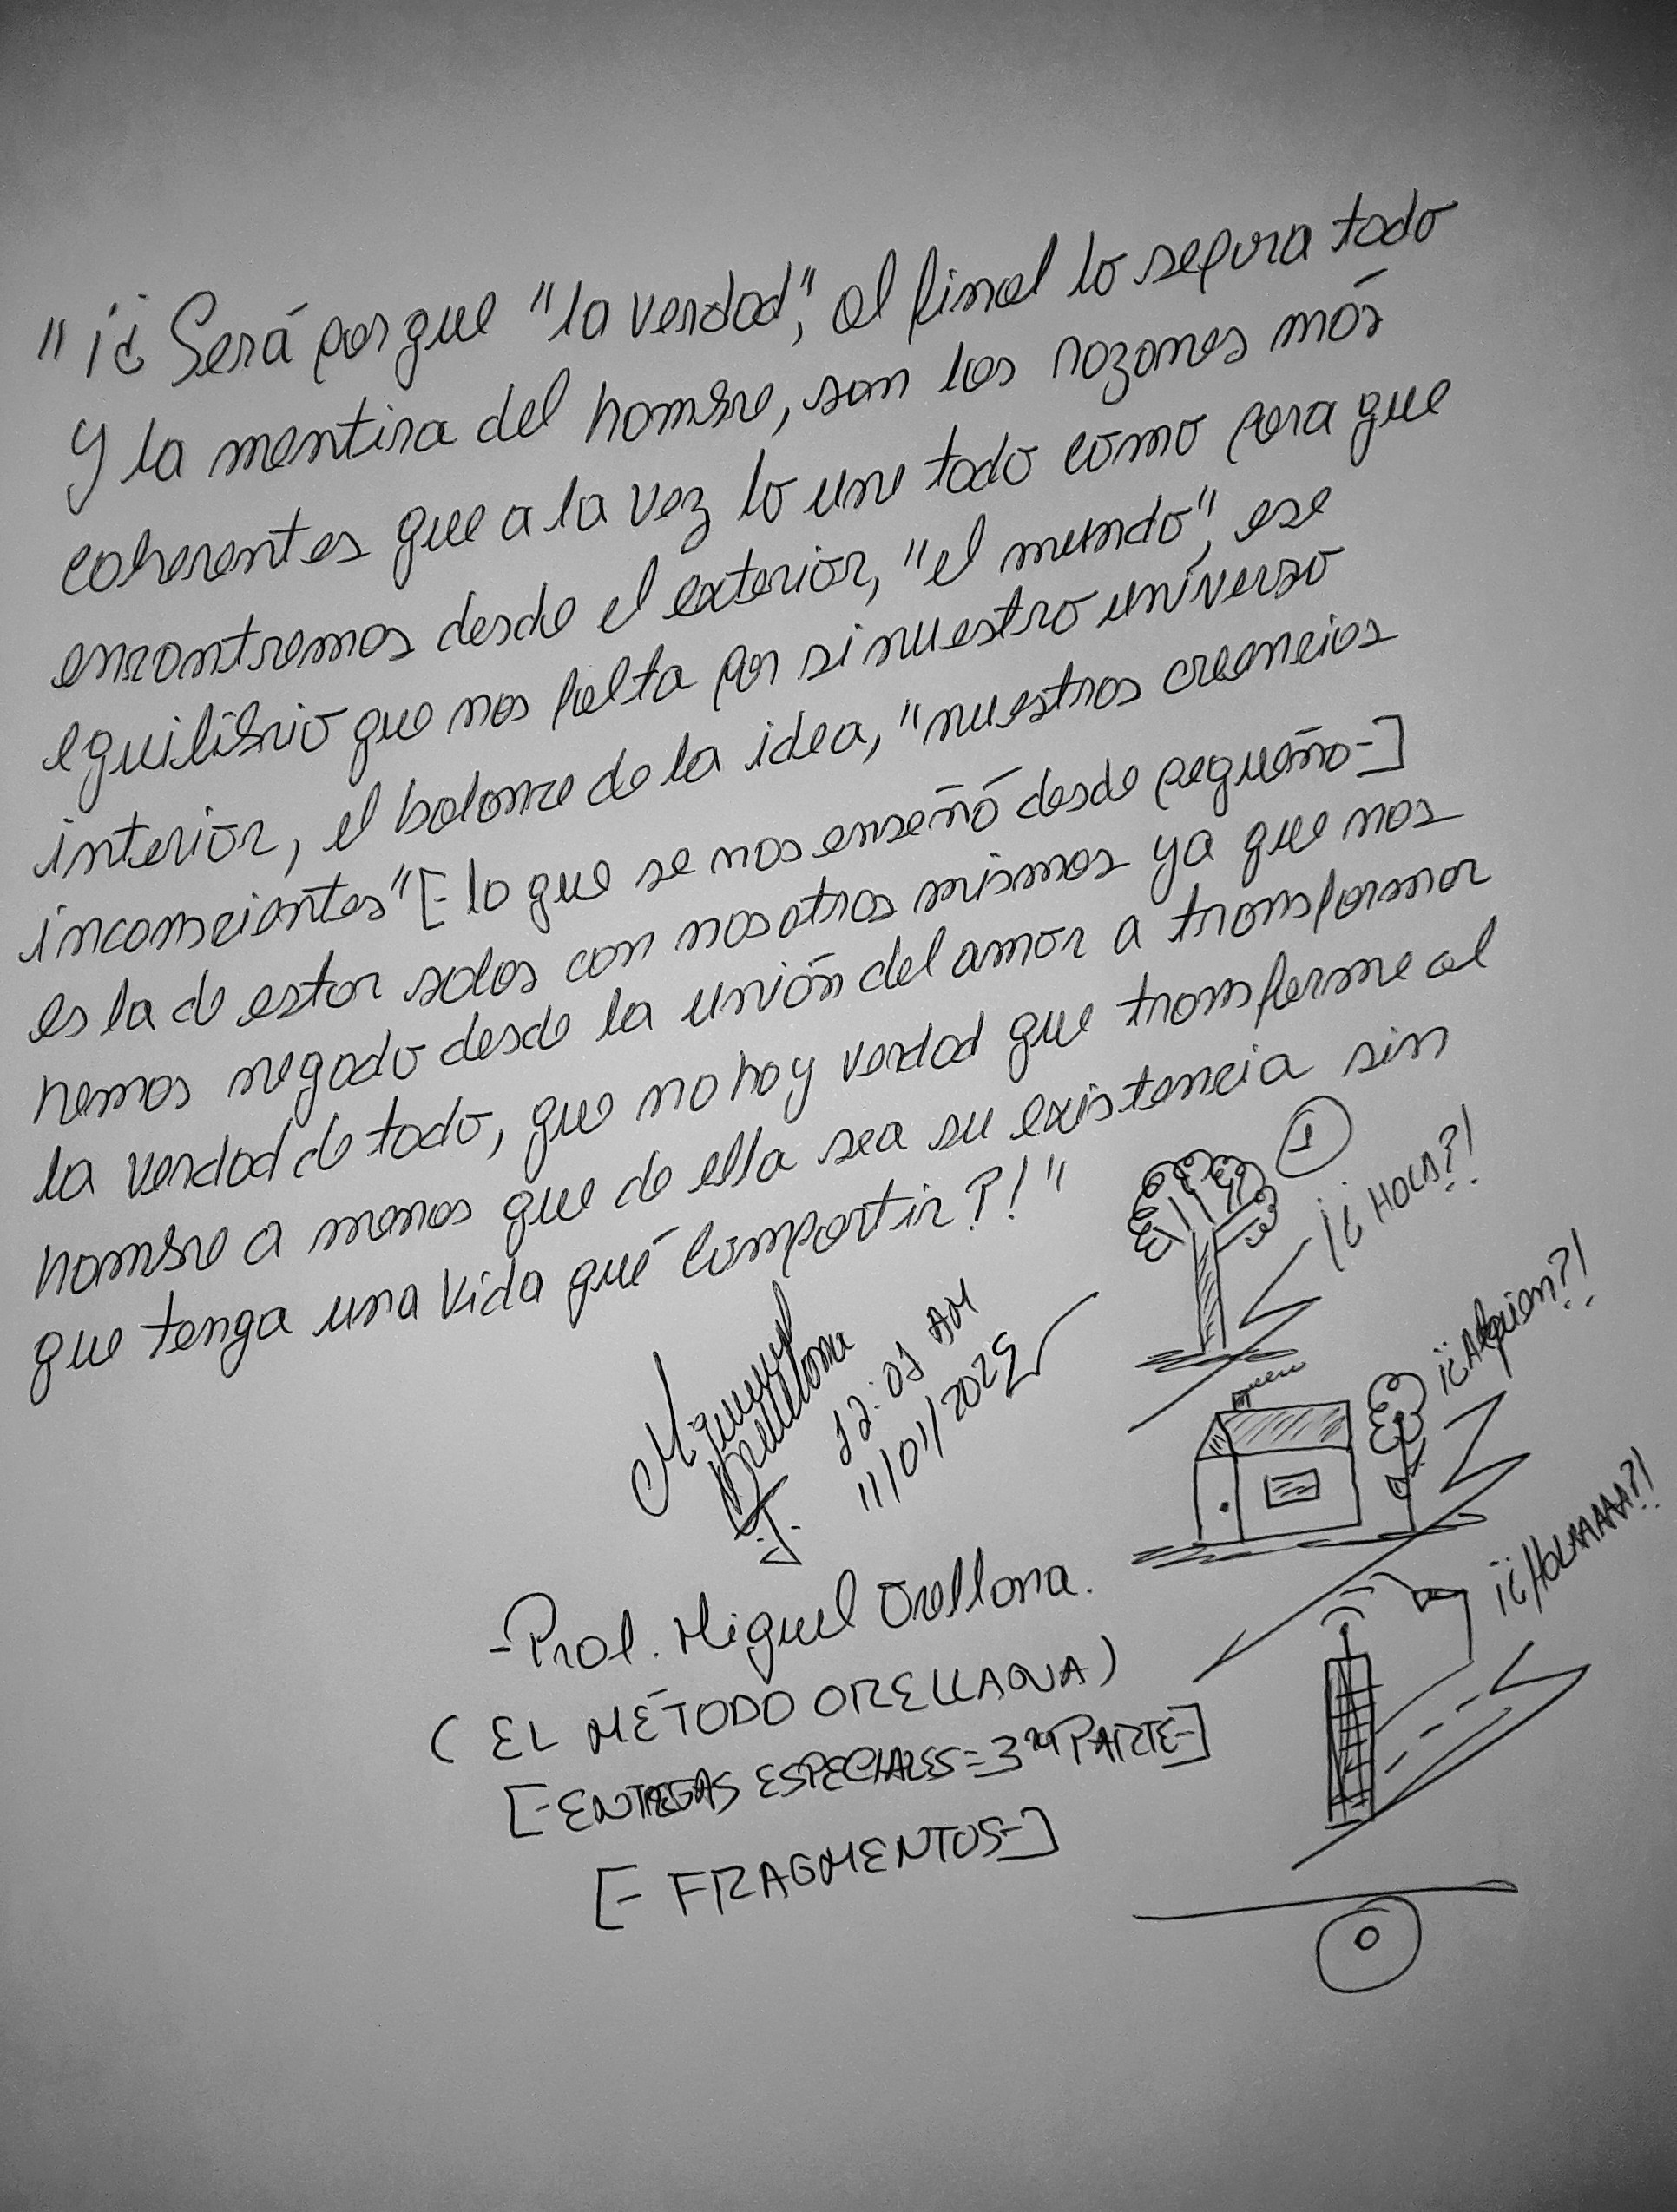 "¡¿Será porque "la verdad", al final lo separa todo
y la mentira del hombre, son las razones más
coherentes que a la vez lo une todo como para que
encontremos desde el exterior, "el mundo", ese
equilibrio que nos falta por si nuestro universo
interior, el balance de la idea, "nuestras creencias
inconscientes" [-lo que se nos enseñó desde pequeño-]
es la de estar solos con nosotros mismos ya que nos
hemos negado desde la unión del amor a transformar
la verdad de todo, que no hay verdad que transforme al
hombre a menos que de ella sea su existencia sin
que tenga una vida qué compartir?!"
1
¡¿HOLA?!
¡¿Alguien?!
¡¿HOLAAAAA?!
Miguel
Orellana
J.
12:01 AM
11/01/2025
-Prof. Miguel Orellana.
(EL MÉTODO ORELLANA)
[-ENTREGAS ESPECIALES=3RA PARTE-]
[-FRAGMENTOS-]